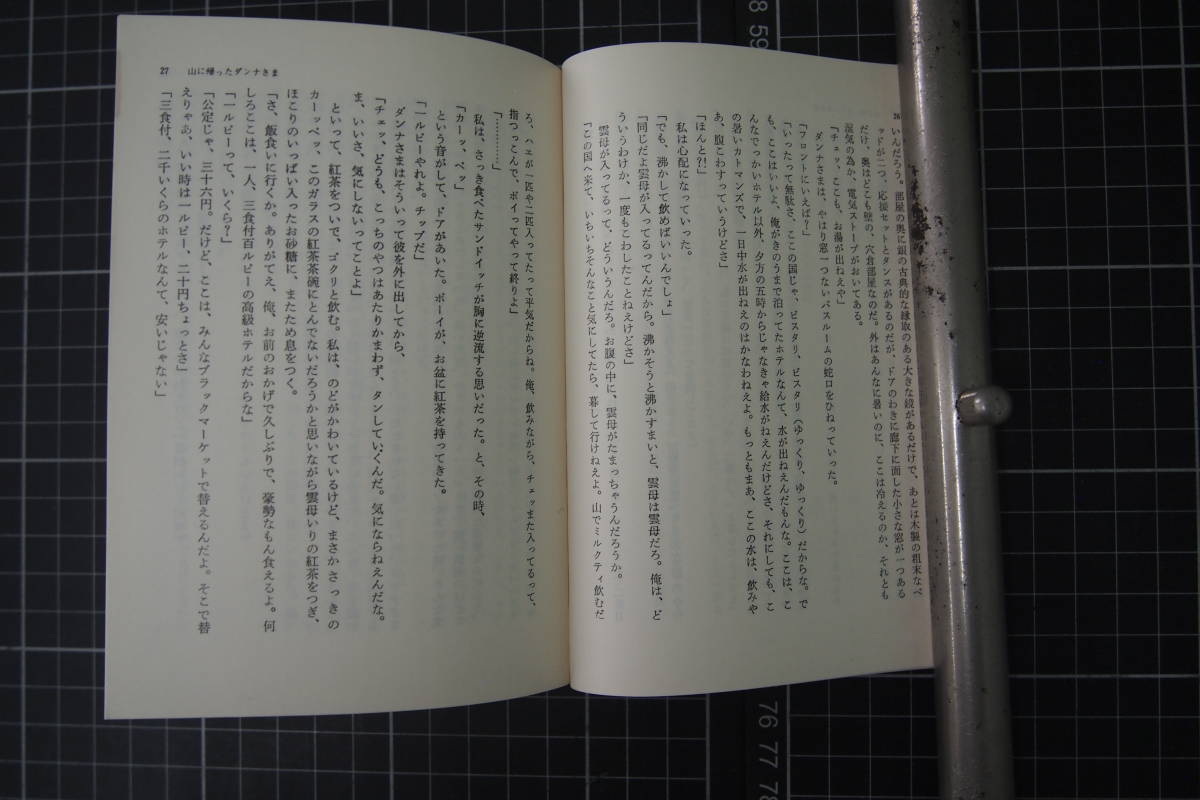 26
いんだろう。部屋の奥に銀の古典的な縁取のある大きな鏡があるだけで、あとは木製の粗末なベ
ッドが二つ、応接セットとタンスがあるのだが、ドアのわきに廊下に面した小さな窓が一つある
だけ、奥はどこも壁の、穴倉部屋なのだ。外はあんなに暑いのに、ここは冷えるのか、それとも
湿気の為か、電気ストーブがおいてある。
「チェッ、ここも、お湯が出ねえや」
ダンナさまは、やはり窓一つないバスルームの蛇口をひねっていった。
「フロントにいえば?」
「いったって無駄さ、ここの国じゃ、ビスタリ、ビスタリ(ゆっくり、ゆっくり)だからな。で
も、ここはいいよ、俺がきのうまで泊ってたホテルなんて、水が出ねえんだもんな。ここは、こ
んなでっかいホテル以外、夕方の五時からじゃなきゃ給水がねえんだけどさ、それにしても、こ
の暑いカトマンズで、一日中水が出ねえのはかなわねえよ。もっともまあ、ここの水は、飲みゃ
あ、腹こわすっていうけどさ」
「ほんと?!」
私は心配になっていった。
「でも、沸かして飲めばいいんでしょ」
「同じだよ雲母が入ってるってんだから。沸かそうと沸かすまいと、雲母は雲母だろ。俺は、ど
ういうわけか、一度もこわしたことねえけどさ」
雲母が入ってるって、どういうんだろ。お腹の中に、雲母がたまっちゃうんだろうか。
「この国へ来て、いちいちそんなこと気にしてたら、暮して行けねえよ。山でミルクティ飲むだ
27 山に帰ったダンナさま
ろ、ハエが一匹や二匹入ってたって平気だからね。俺、飲みながら、チェッまた入ってるって、
指つっこんで、ポイってやって終りよ」
「………」
私は、さっき食べたサンドイッチが胸に逆流する思いだった。と、その時、
「カーッ、ペッ」
という音がして、ドアがあいた。ボーイが、お盆に紅茶を持ってきた。
「一ルピーやれよ。チップだ」
ダンナさまはそういって彼を外に出してから、
「チェッ、どうも、こっちのやつはあたりかまわず、タンしていくんだ。気にならねえんだな。
ま、いいさ、気にしないってことよ」
といって、紅茶をついで、ゴクリと飲む。私は、のどがかわいているけど、まさかさっきの
カーッペッ、このガラスの紅茶茶碗にとんでないだろうかと思いながら雲母いりの紅茶をつぎ、
ほこりのいっぱい入ったお砂糖に、またため息をつく。
「さ、飯食いに行くか。ありがてえ、俺、お前のおかげで久しぶりで、豪勢なもん食えるよ。何
しろここは、一人、三食付百ルピーの高級ホテルだからな」
「一ルピーって、いくら?」
「公定じゃ、三十六円。だけど、ここは、みんなブラックマーケットで替えるんだよ。そこで替
えりゃあ、いい時は一ルピー、二十円ちょっとさ」
「三食付、二千いくらのホテルなんて、安いじゃない」
8 59
76 77 78